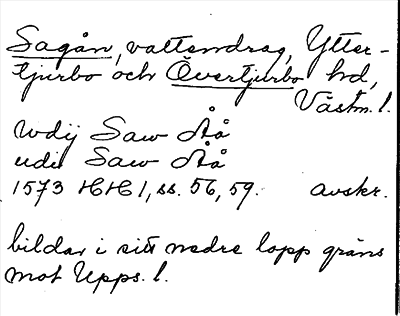 Sagån, vattendrag, Ytter-
tjurbo och Övertjurbo hd,
Västm. l.
wdij Saw Åå
udi Saw Åå
1573 HH 1, ss. 56, 59. avskr.
bildar i sitt nedre lopp gräns
mot Upps. l.